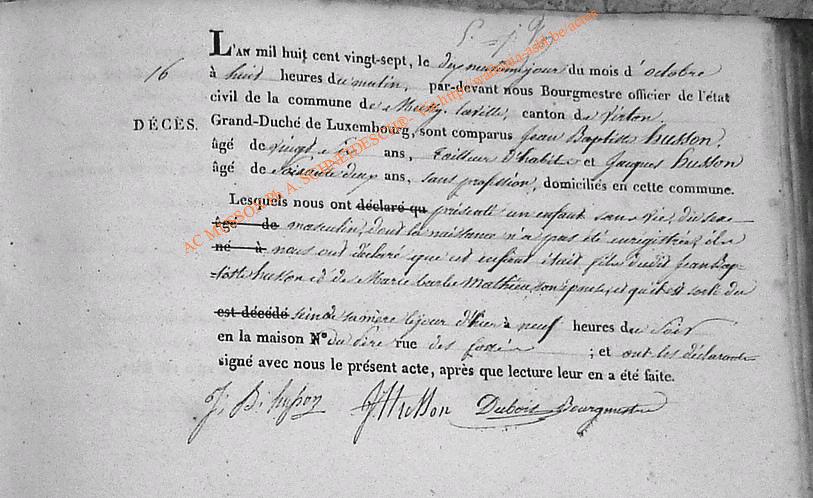 16
DÉCÈS.
L'AN mil huit cent vingt-sept, le dix neuvième jour du mois d'octobre
à huit heures du matin, par-devant nous Bourgmestre officier de l'état
civil de la commune de Mussy laville, canton de Virton
Grand-Duché de Luxembourg, sont comparus Jean Baptiste husson,
âgé de vingt ans, tailleur d'habits et Jacques husson
âgé de Soixante deux ans, sans profession, domiciliés en cette commune.
Lesquels nous ont déclaré qu présenté un enfant sans vie, du sexe
âge de masculin, dont la naissance n'a pas été enregistrée, ils
né à nous ont déclaré que cet enfant était fils dudit Jean Bap-
-tiste husson et de Marie barbe Mathieu son épouse, et qu'il est sorti du
est décédé sein de sa mère le jour d'hier à neuf heures du Soir
en la maison N° du père rue des fossés ; et ont les déclarants
signé avec nous le présent acte, après que lecture leur en a été faite.
J. B. husson JHusson Dubois Bourgmestre